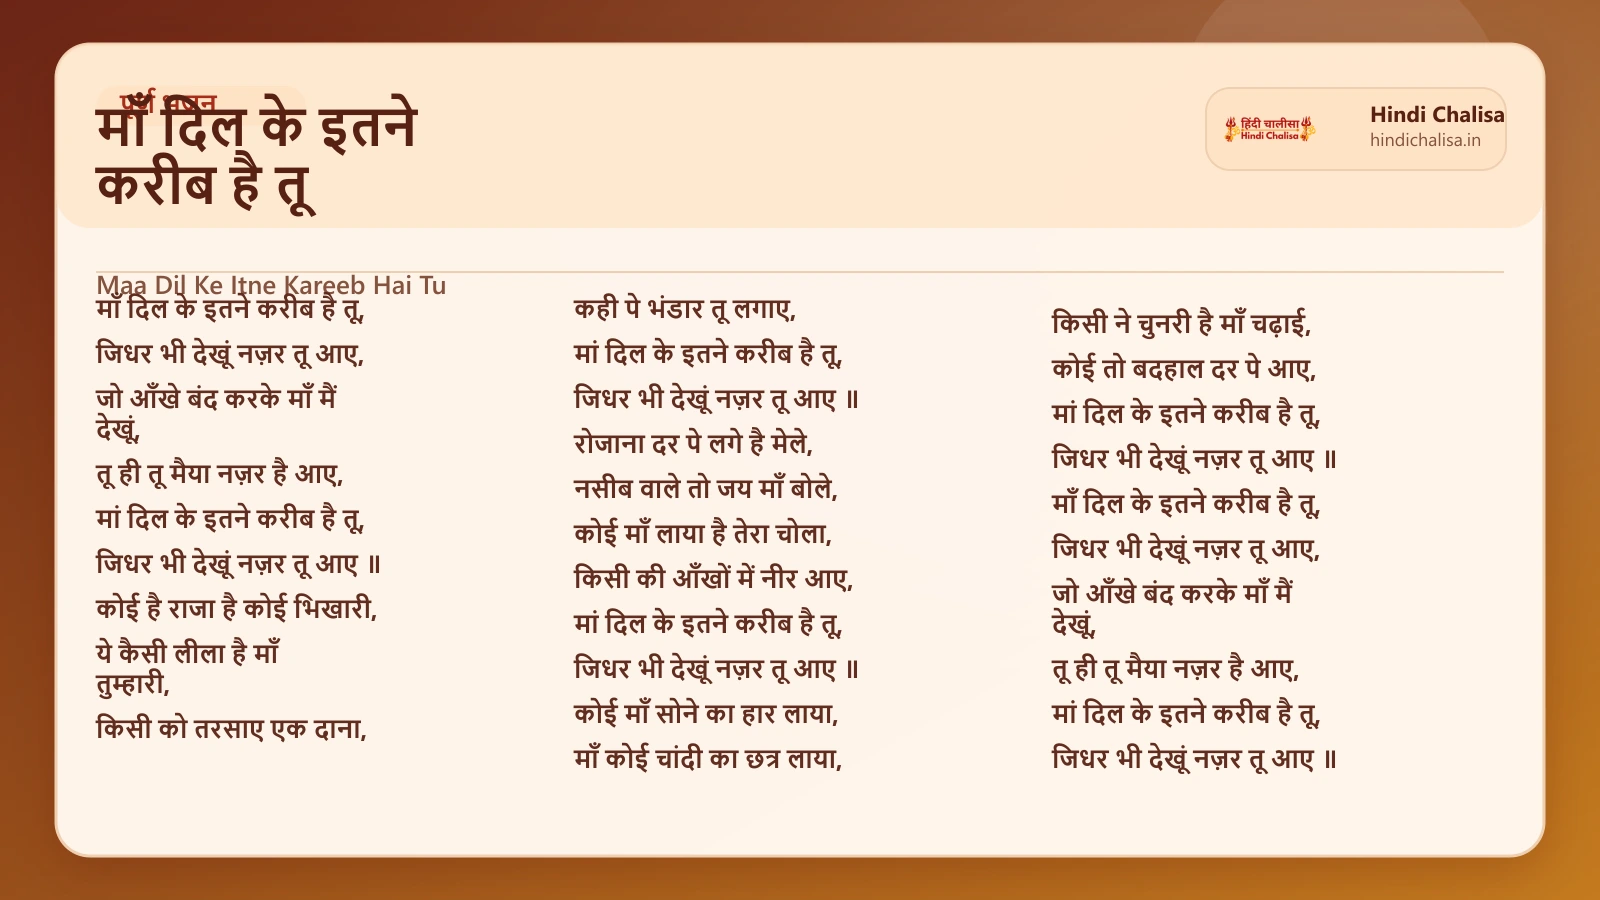 पूर्ण भजन
माँ दिल के इतने
करीब है तू
हिंदी चालीसा
Hindi Chalisa
Hindi Chalisa
hindichalisa.in
Maa Dil Ke Itne Kareeb Hai Tu
माँ दिल के इतने करीब है तू,
जिधर भी देखूं नज़र तू आए,
जो आँखे बंद करके माँ मैं
देखूं,
तू ही तू मैया नज़र है आए,
मां दिल के इतने करीब है तू,
जिधर भी देखूं नज़र तू आए ॥
कोई है राजा है कोई भिखारी,
ये कैसी लीला है माँ
तुम्हारी,
किसी को तरसाए एक दाना,
कही पे भंडार तू लगाए,
मां दिल के इतने करीब है तू,
जिधर भी देखूं नज़र तू आए ॥
रोजाना दर पे लगे है मेले,
नसीब वाले तो जय माँ बोले,
कोई माँ लाया है तेरा चोला,
किसी की आँखों में नीर आए,
मां दिल के इतने करीब है तू,
जिधर भी देखूं नज़र तू आए ॥
कोई माँ सोने का हार लाया,
माँ कोई चांदी का छत्र लाया,
किसी ने चुनरी है माँ चढ़ाई,
कोई तो बदहाल दर पे आए,
मां दिल के इतने करीब है तू,
जिधर भी देखूं नज़र तू आए ॥
माँ दिल के इतने करीब है तू,
जिधर भी देखूं नज़र तू आए,
जो आँखे बंद करके माँ मैं
देखूं,
तू ही तू मैया नज़र है आए,
मां दिल के इतने करीब है तू,
जिधर भी देखूं नज़र तू आए ॥